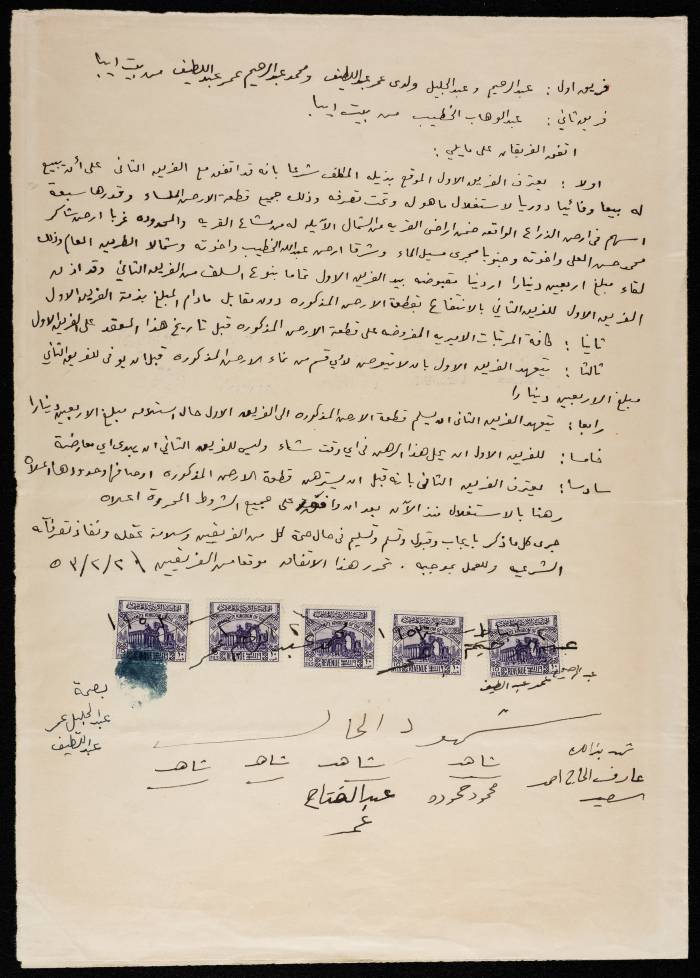 فريق اول : عبدالرحيم وعبدالجليل ولدى عمر عبداللطيف ومحمد عبدالرحيم عمر عبداللطيف من بيت ايبا
فريق ثاني : عبدالوهاب الخطيب من بيت ايبا
اتفق الفريقان على مايلي :
اولا : يعترف الفريق الاول الموقع بذيله المكلف شرعا بانه قد اتفق مع الفريق الثاني على أن يبيع
له بيعا وفائيا دوريا لاستغلال ماهو له وتحت تصرفه وذلك جميع قطعة الارض الملساء وقدرها سبعة
اسهم في ارض الذراع الواقعه ضمن اراضى القريه من الشمال الآيله له من مشاع القريه والمحدوده غربا ارض شاكر
محمد حسن العلي واخوته وجنوبا مجرى مسيل الماء وشرقا ارض عبدالله الخطيب واخوته وشمالا الطريق العام وذلك
لقاء مبلغ اربعين دينارا اردنيا مقبوضه بيد الفريق الاول تماما بنوع السلف من الفريق الثاني وقد اذن
الفريق الاول للفريق الثاني بالانتفاع بقطعة الارض المذكوره دون مقابل مادام المبلغ بذمة الفريق الاول
ثانيا : كافة المرتبات الاميريه المفروضه على قطعة الارض المذكوره قبل تاريخ هذا العقد على الفريق الاول
ثالثا : يتعهد الفريق الاول بان لا يتعرض لاي قسم من نماء الارض المذكوره قبل ان يوفى للفريق الثاني
مبلغ الاربعين دينارا
رابعا : يتعهد الفريق الثاني ان يسلم قطعة الارض المذكوره الى الفريق الاول حال استلامه مبلغ الاربعين دينارا
خامسا : للفريق الاول ان يحل هذا الرهن في اي وقت شاء وليس للفريق الثاني ان يبدى اي معارضة
سادسا : يعترف الفريق الثاني بانه قبل ان يسترهن قطعة الارض المذكوره اوصافها وحدودها اعلاه
رهنا بالاستغلال منذ الآن بعد ان وافق على جميع الشروط المحررة اعلاه
جرى كل ماذكر بايجاب وقبول وتسلم وتسليم في حال صحة كل من الفريقين وسلامة عقله ونفاذ تصرفاته
الشرعيه وللعمل بموجبه . تحرر هذا الاتفاق موقعا من الفريقين ٢/٢/٥٣
REVENUE
REVENUE
REVENUE
REVENUE
REVENUE
عمر عبد اللطيف
بصمة
عبدالجليل عمر
عبداللطيف
شهود الحال
شاهد
شاهد
شاهد
شاهد
محمود حموده
عبدالفتاح
عمر
شهد بذلك
عارف الحاج احمد